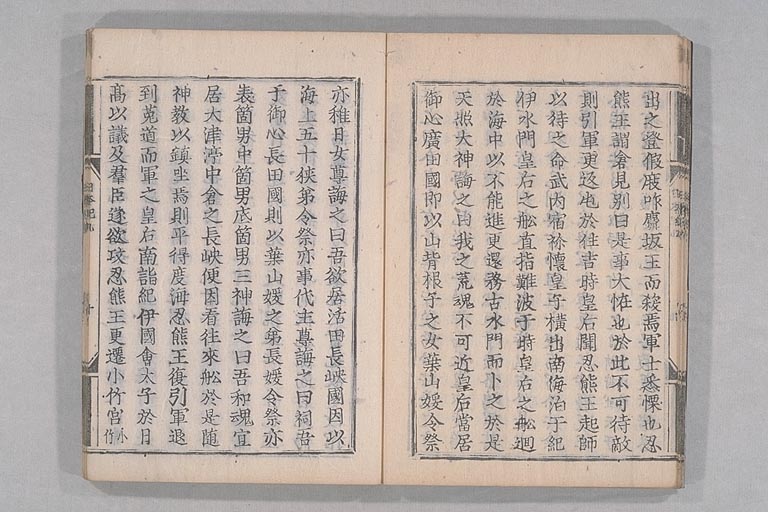 出之登假庪咋麛坂王而殺焉軍士悉慄也忍
熊王謂倉見別曰是事大恠也於此不可待敵
則引軍更返屯於住吉時皇后聞忍熊王起師
以待之命武內宿祢懷皇子横出南海泊于紀
伊水門皇后之舩直指難波于時皇后之舩廻
於海中以不能進更還務古水門而卜之於是
天照大神誨之曰我之荒魂不可近皇后當居
御心廣田國即以山背根子之女葉山媛令祭
亦稚日女尊誨之曰吾欲居活田長峽國因以
海上五十狹茅令祭亦事代主尊誨之曰祠吾
于御心長田國則以葉山媛之弟長媛令祭亦
表筒男中筒男底筒男三神誨之曰吾和魂宜
居大津渟中倉之長峽便因看往來舩於是随
神教以鎮坐焉則平得度海忍熊王復引軍退
到菟道而軍之皇后南詣紀伊國會太子於日
髙以議及羣臣遂欲攻忍熊王更遷小竹宮小竹